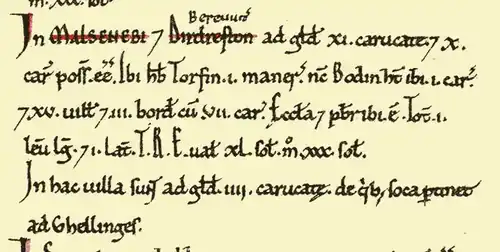 m̃. xxx. sol̃.
Bereuuit̃
Jn MALSENEBI ⁊ Dindreston ad gld̃ xi. carucatæ. ⁊ x.
car̃ poss̃. eẽ. Ibi hb̃ Torfin. i. maner̃. nc̃ Bodin ht̃ ibi. i. car̃.
⁊ xv. uilt̃ ⁊ iii. bord̃ cũ. vii. car̃. Eccl̃a ⁊ pbr̃ ibi ẽ. Tot̃. i.
leũ lg̃. ⁊ i. lat̃. T. R. E. uat̃ xl. sol̃. m̃. xxx. sol̃.
Jn hac uilla suñ ad gld̃ iiii. carucatæ. de qib; soca ꝑtinet
ad Ghellinges.